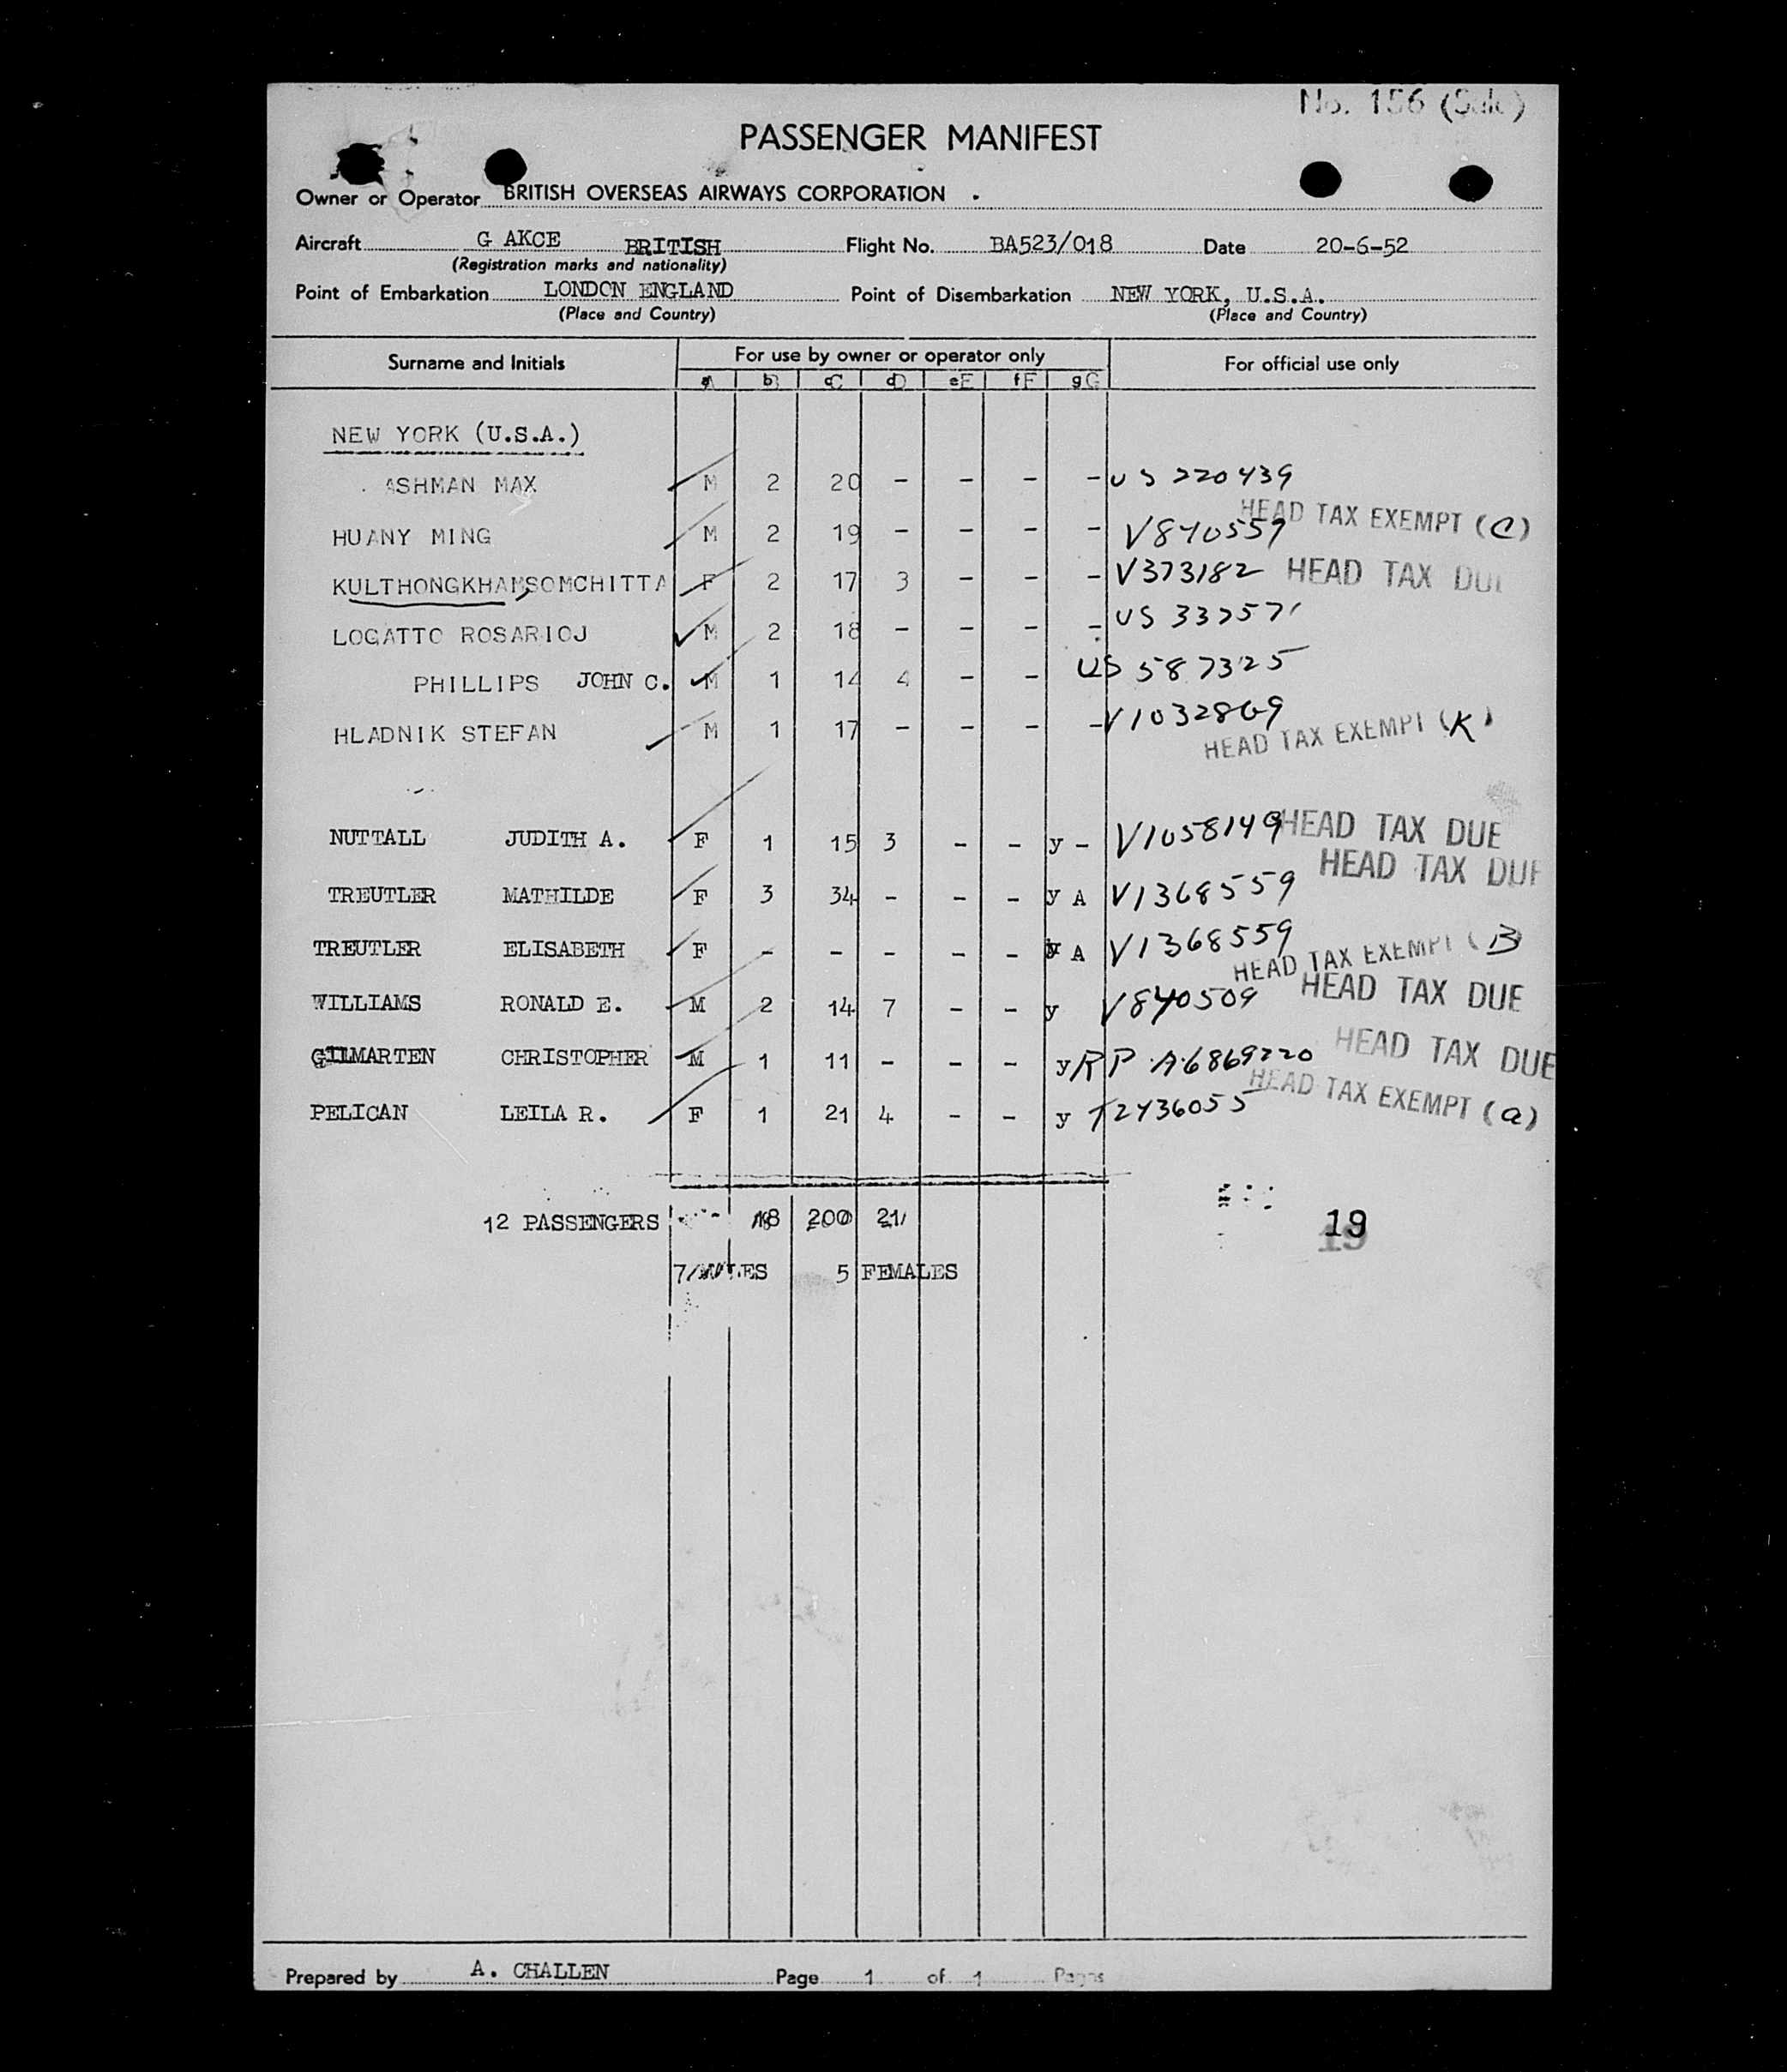 No. 156
PASSENGER MANIFEST
Owner or Operator BRITISH OVERSEAS AIRWAYS CORPORATION .
Aircraft G AKCE BRITISH Flight No. BA523/018 Date 20-6-52
(Registration marks and nationality)
Point of Embarkation LONDON ENGLAND Point of Disembarkation NEW YORK, U.S.A.
(Place and Country) (Place and Country)
Surname and Initials For use by owner or operator only For official use only
a A b B c C d D e E f F g G
NEW YORK (U.S.A.)
ASHMAN MAX M 2 20 - - - - US 220439
HEAD TAX EXEMPT (C)
HUANY MING M 2 19 - - - - V840559
KULTHONGKHAMSOMCHITTA F 2 17 3 - - - V373182 HEAD TAX DUE
LOGATTO ROSARIOJ M 2 18 - - - - US
PHILLIPS JOHN C. M 1 14 4 - - US 587325
HLADNIK STEFAN M 1 17 - - - - V1032869
HEAD TAX EXEMPT (K)
NUTTALL JUDITH A. F 1 15 3 - - y - V1058149 HEAD TAX DUE
HEAD TAX DUE
TREUTLER MATHILDE F 3 34 - - - y A V1368559
TREUTLER ELISABETH F - - - - - y A V1368559
HEAD TAX EXEMPT (B)
WILLIAMS RONALD E. M 2 14 7 - - y V840509 HEAD TAX DUE
GILMARTEN CHRISTOPHER M 1 11 - - - y RP A6869220 HEAD TAX DUE
HEAD TAX EXEMPT (a)
PELICAN LEILA R. F 1 21 4 - - y T2436055
12 PASSENGERS 18 200 21 19
7 MALES 5 FEMALES
Prepared by A. CHALLEN Page 1 of 1 Pages